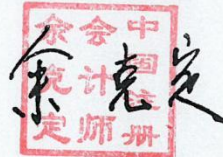 中国注册
会计师
余克定
余克定